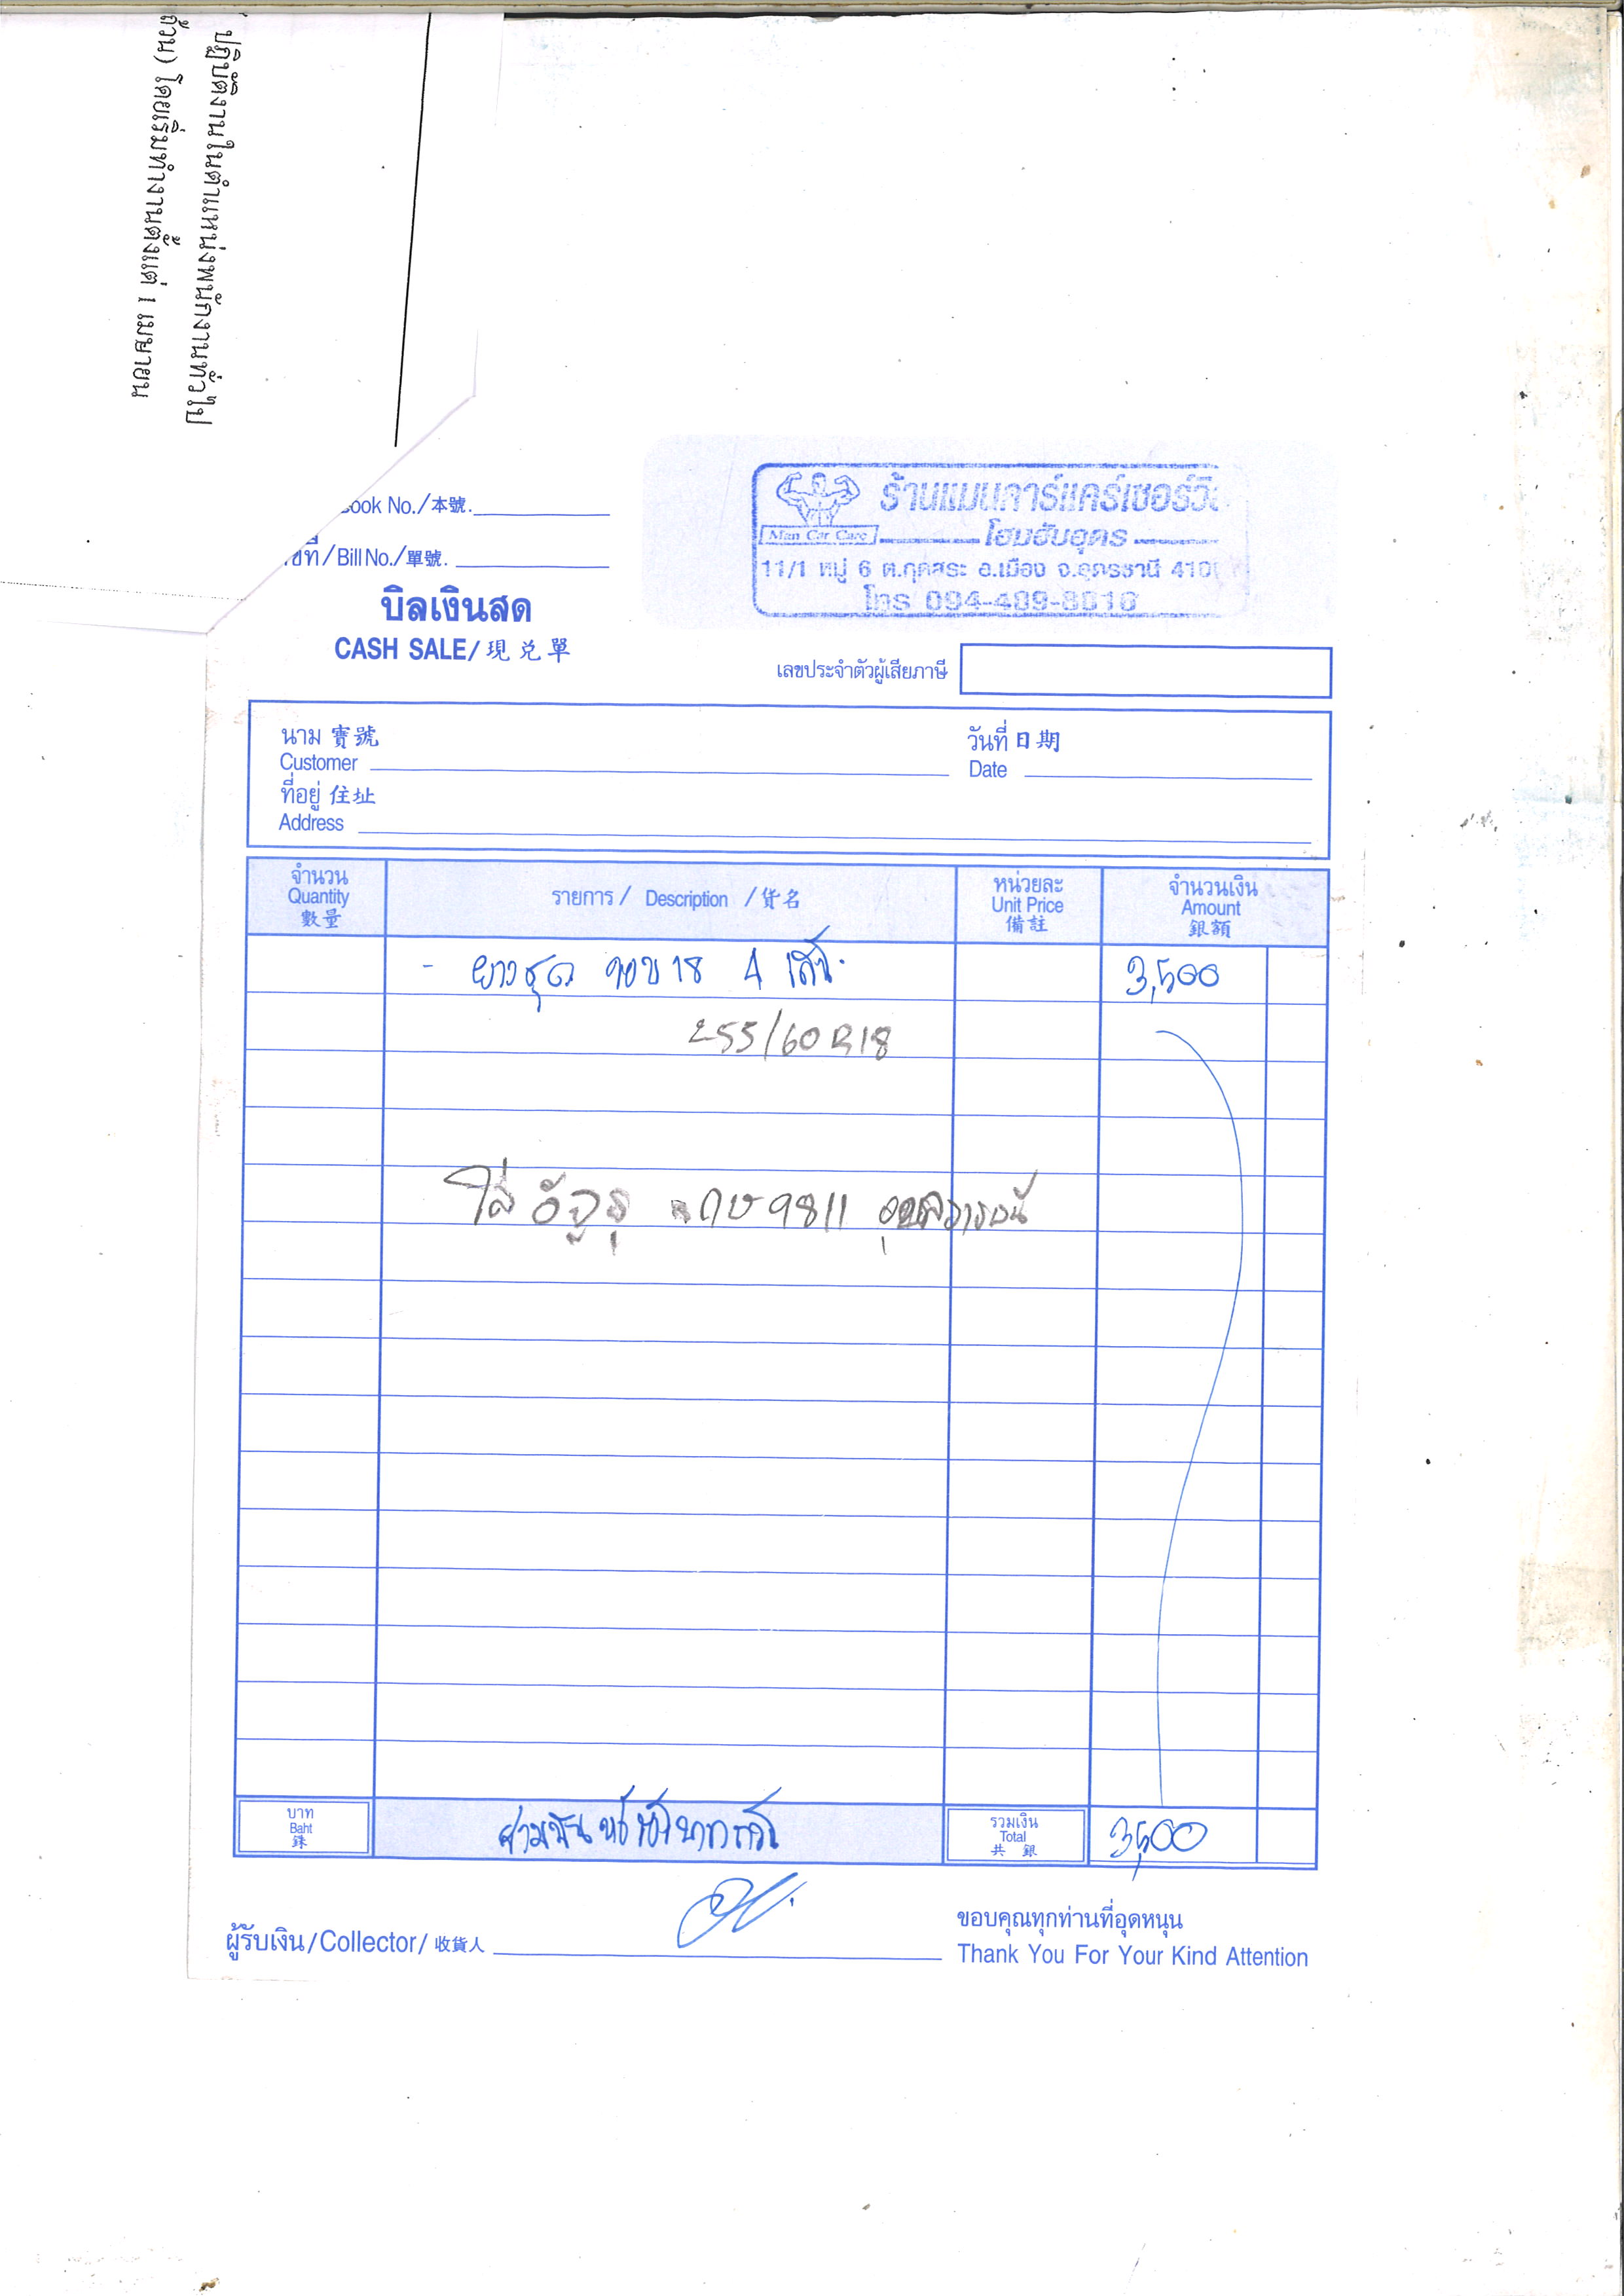 ปฏิบัติงานในตำแหน่งพนักงานทั่วไป
ถ้วน) โดยเริ่มทำงานตั้งแต่ 1 เมษายน
ook No./本號.
ที่/Bill No./單號.
บิลเงินสด
CASH SALE/現兑單
ร้านแมนคาร์แคร์เซอร์วิส
Man Car Care
โฮมฮับอุดร
11/1 หมู่ 6 ต.กุดสระ อ.เมือง จ.อุดรธานี 410
โทร 094-489-8816
เลขประจำตัวผู้เสียภาษี
นาม 寶號
Customer
วันที่ 日期
Date
ที่อยู่ 住址
Address
จำนวน
Quantity
數量
รายการ / Description / 貨名
หน่วยละ
Unit Price
備註
จำนวนเงิน
Amount
銀額
- ยางชุด ขอบ 18 4 เส้น. 3,500
255/60R18
ใส่ อีซูซุ กษ 9811
บาท
Baht
銖
สามพันห้าร้อยบาทถ้วน
รวมเงิน
Total
共 銀
3,500
ผู้รับเงิน/Collector/收貨人
ขอบคุณทุกท่านที่อุดหนุน
Thank You For Your Kind Attention